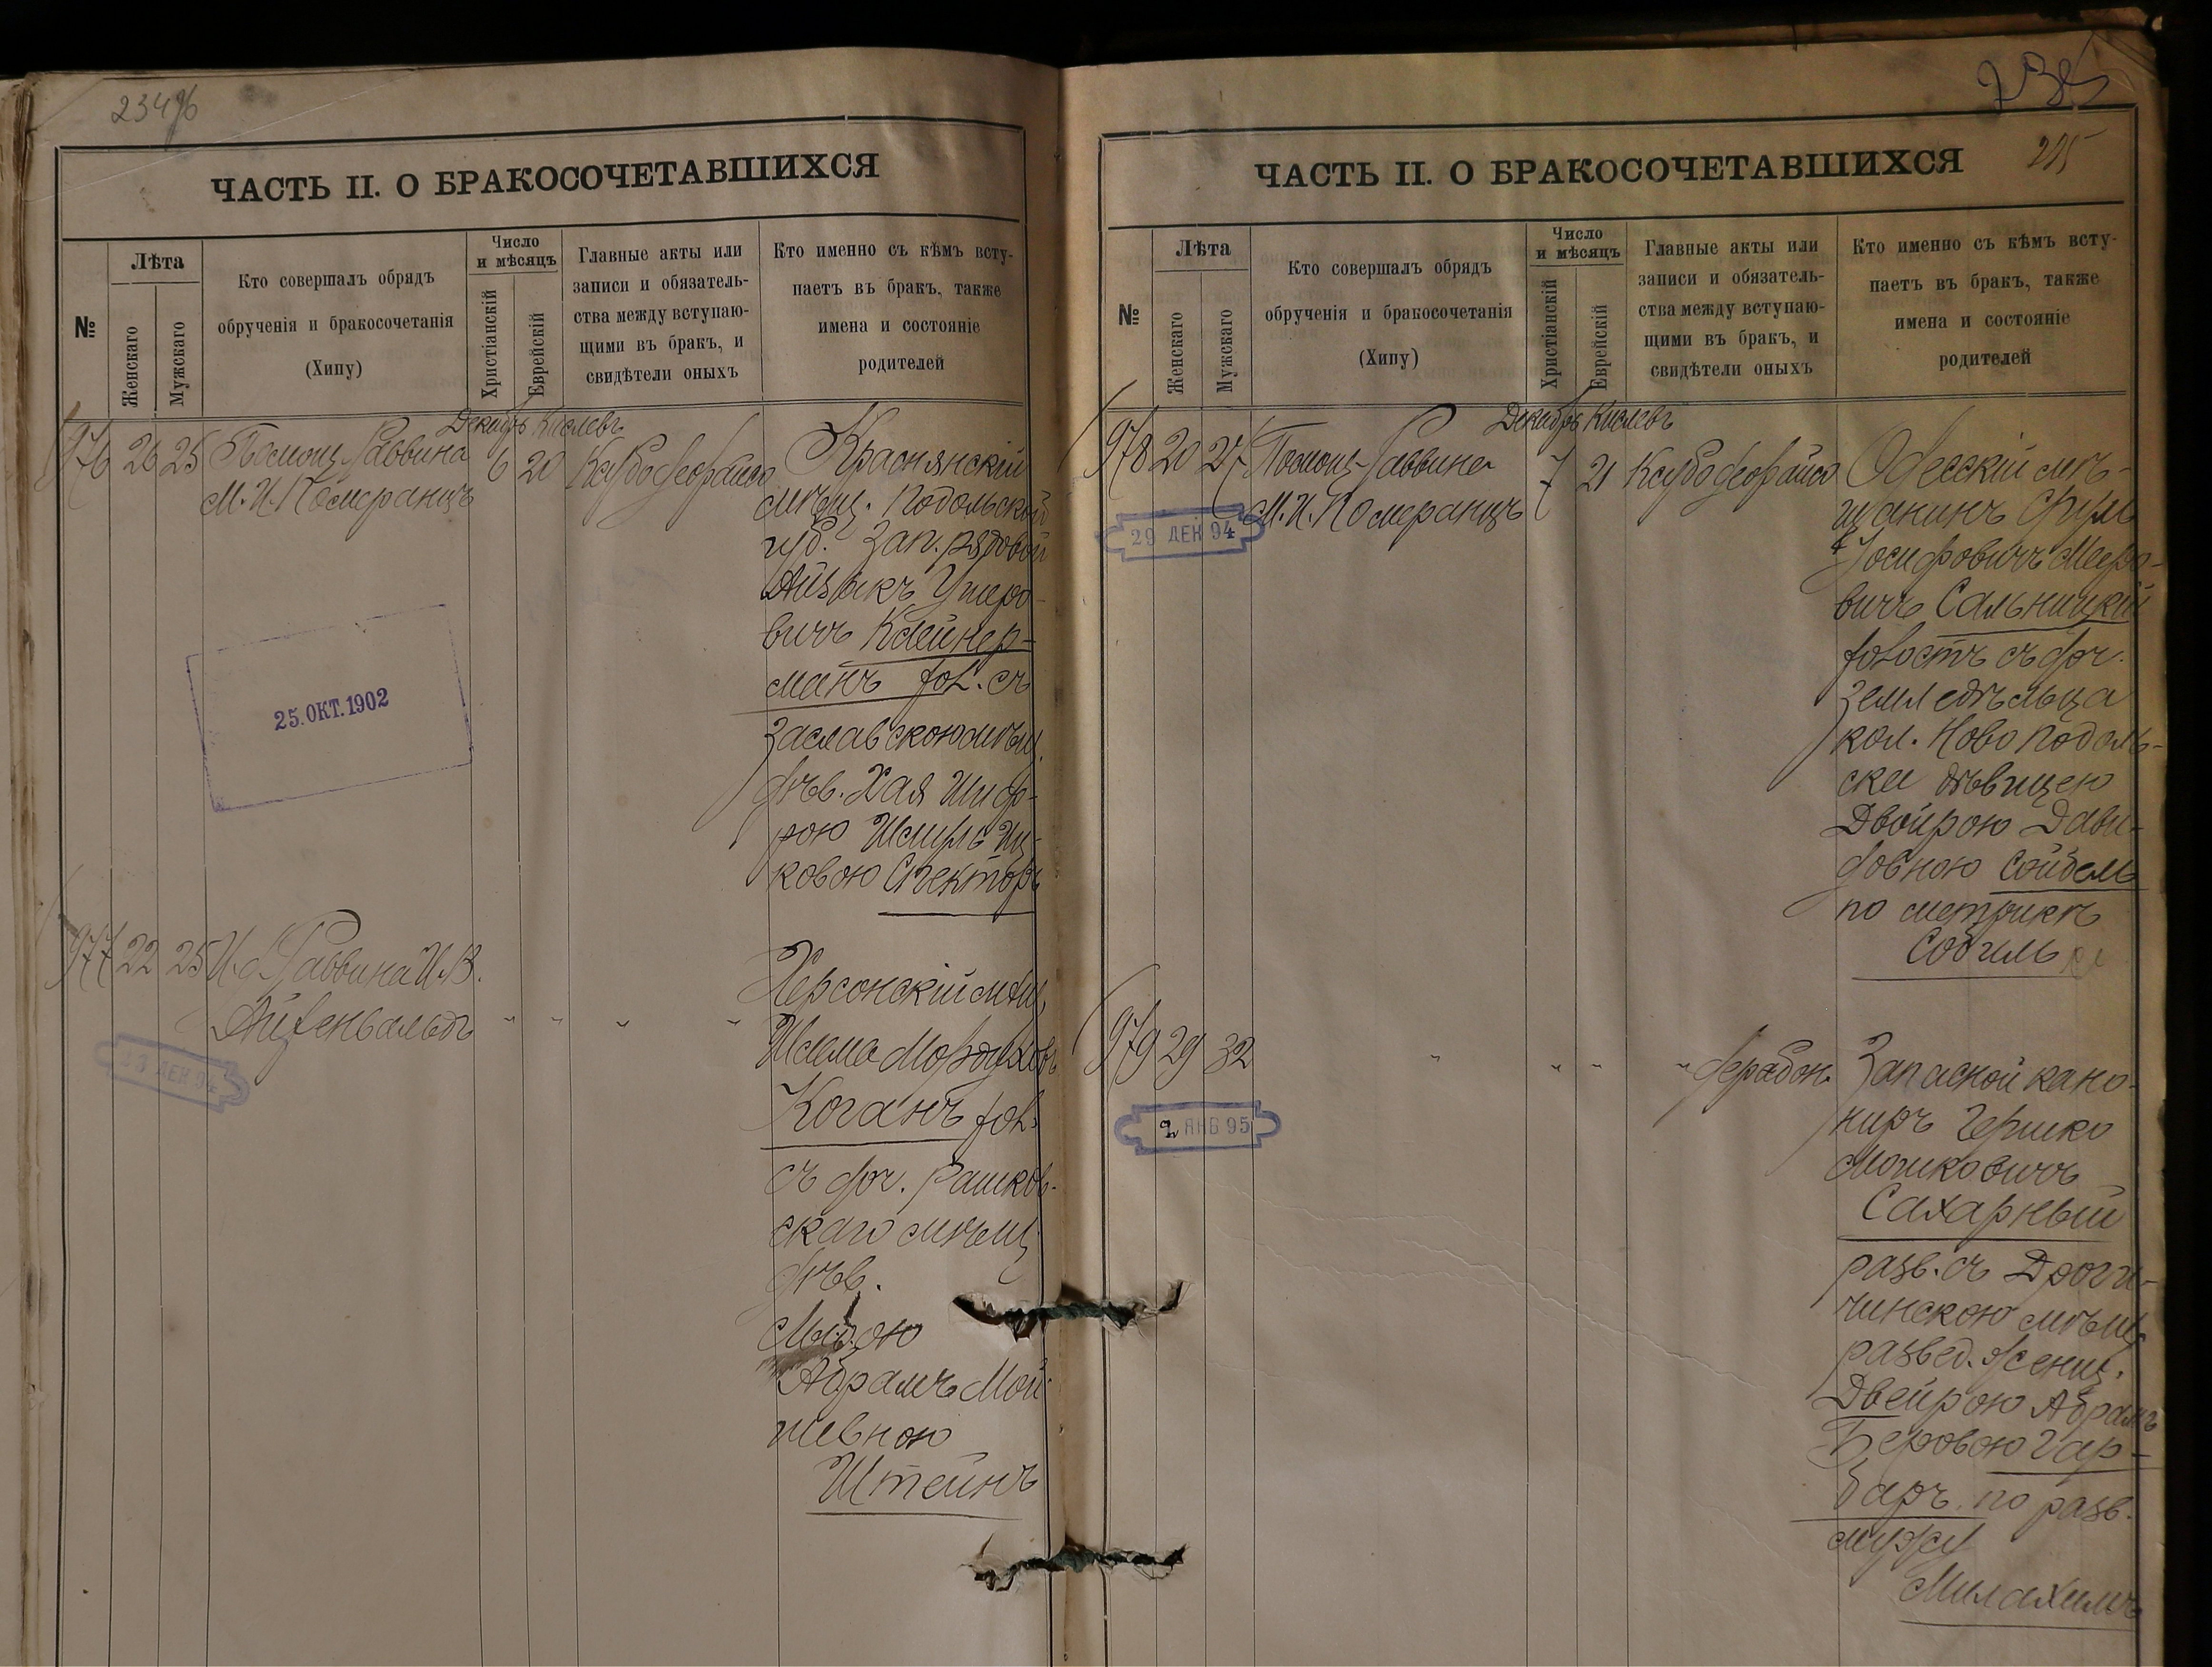 234 об
ЧАСТЬ II. О БРАКОСОЧЕТАВШИХСЯ
№
Лѣта
Женскаго
Мужскаго
Кто совершалъ обрядъ
обрученія и бракосочетанія
(Хипу)
Число
и мѣсяцъ
Христіанскій
Еврейскій
Главные акты или
записи и обязатель-
ства между вступаю-
щими въ бракъ, и
свидѣтели оныхъ
Кто именно съ кѣмъ всту-
паетъ въ бракъ, также
имена и состояніе
родителей
Декабрь Кислевъ
976 26 25 Помощ. Раввина 6 20 Краснянскій
М. И. Померанцъ
мѣщ. Подольской
губ. Зап. рядовой
Айзыкъ Ушеро-
вичъ Клейнер-
манъ хол. съ
Заславскою мѣщ.
дѣв. Хая Шиф-
рою Шмуль Иц-
ковою Спекторъ
25. ОКТ. 1902
977 22 25 И. д. Раввина И. В.
Айзенвальдъ
" " " "
Херсонскій мѣщ.
Шлема Мордковъ
Коганъ хол.
съ доч. Рашков-
скаго мѣщ.
дѣв.
Абрамъ Мой-
шевною
Штейнъ
ДЕК 94
235
225
ЧАСТЬ II. О БРАКОСОЧЕТАВШИХСЯ
№
Лѣта
Женскаго
Мужскаго
Кто совершалъ обрядъ
обрученія и бракосочетанія
(Хипу)
Число
и мѣсяцъ
Христіанскій
Еврейскій
Главные акты или
записи и обязатель-
ства между вступаю-
щими въ бракъ, и
свидѣтели оныхъ
Кто именно съ кѣмъ всту-
паетъ въ бракъ, также
имена и состояніе
родителей
Декабрь Кислевъ
978 20 27 Помощ. Раввина 7 21 Одесскій мѣ-
М. И. Померанцъ
29 ДЕК 94
щанинъ
Іосифовичъ Мееро-
вичъ Сальницкій
холостъ съ доч.
Земледѣльца
кол. Ново Подоль-
ска дѣвицею
Двойрою Дави-
довною Сойбель
по метрикѣ
Собиль
979 29 32 " " " "
Запасной кано-
ниръ Гершко
Мошковичъ
Сахарный
разв. съ Дроги-
чинскою мѣщ.
развед. женщ.
Двейрою Абрамъ
Беровою Гар-
баръ по разв.
мужу
Милахимъ
2 ЯНВ 95